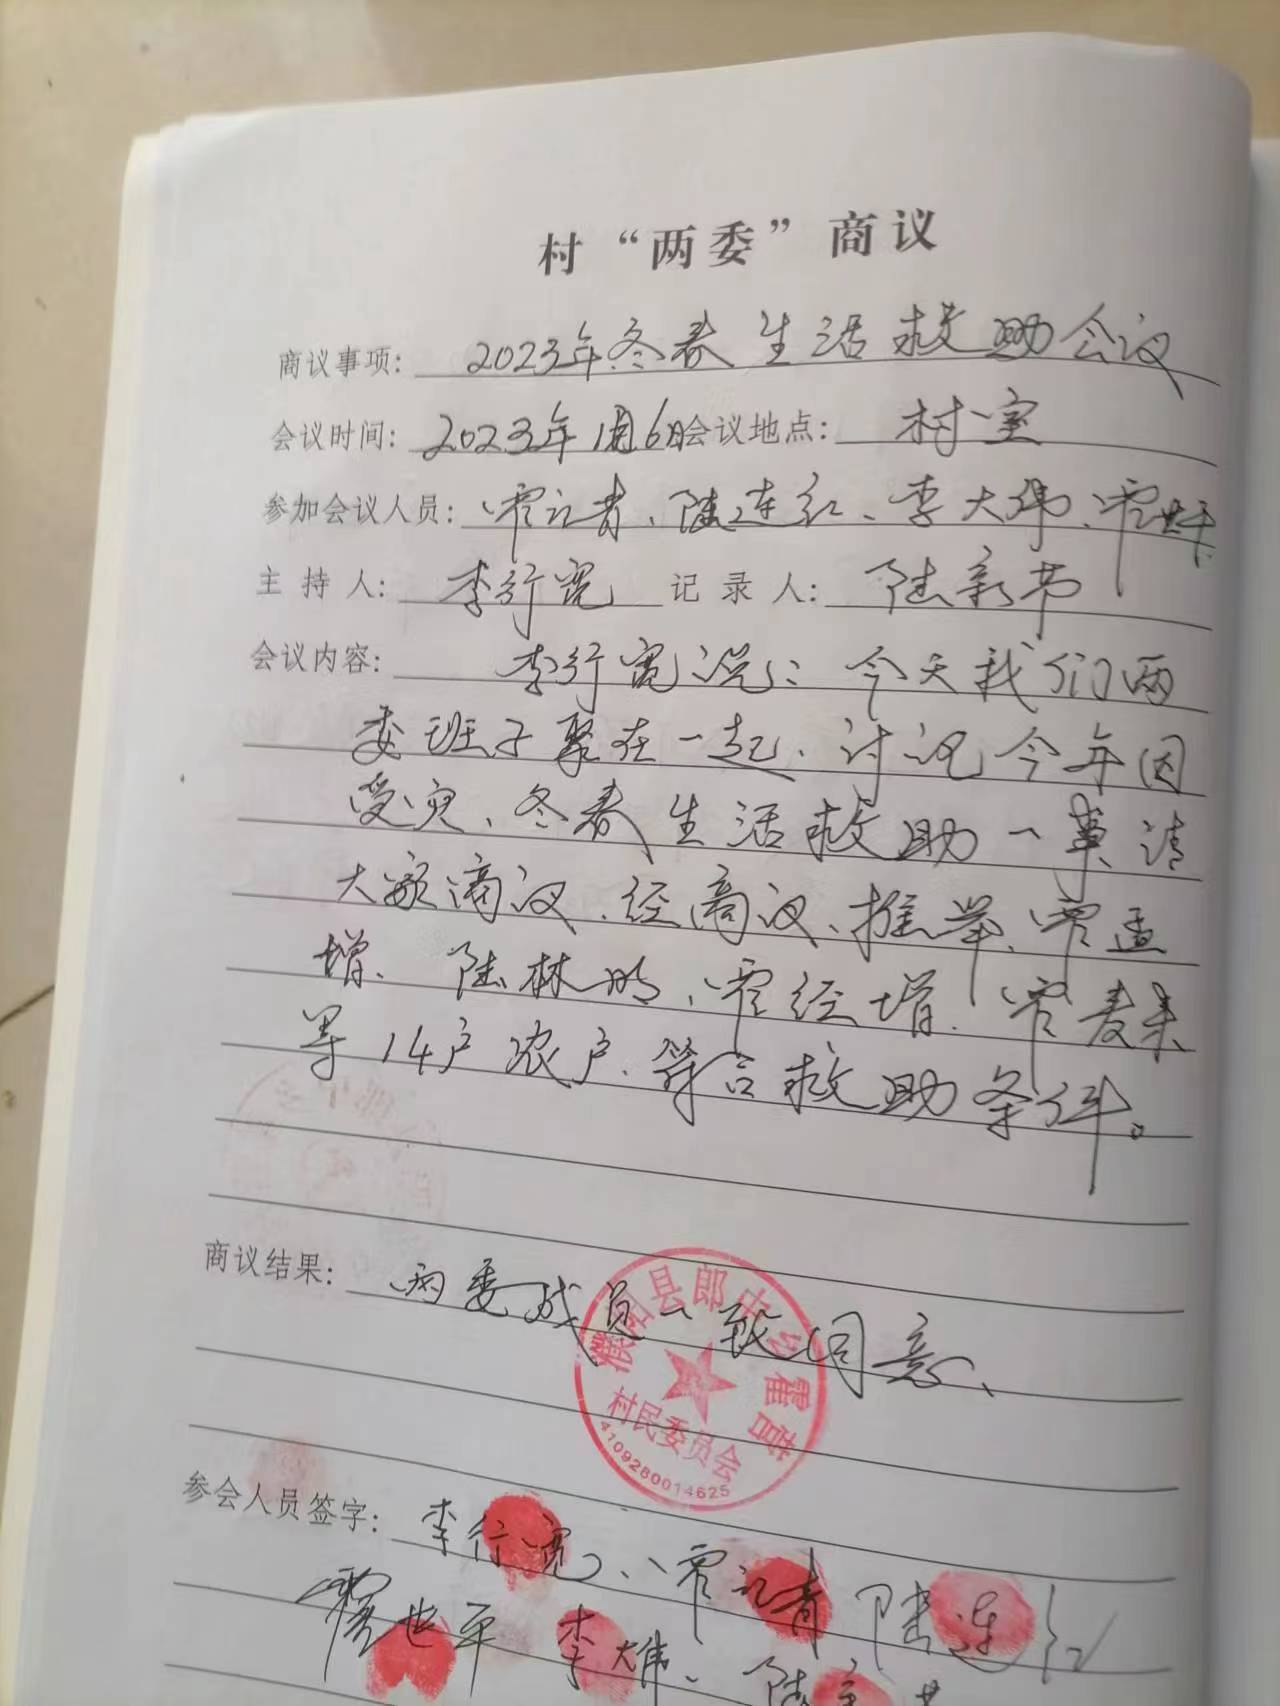 村“两委”商议
商议事项：2023年冬春生活救助会议
会议时间：2023年1月6日会议地点：村室
参加会议人员：霍记青、陆连红、李大伟、霍世平
主持人：李行宽 记录人：陆新节
会议内容：李行宽说：今天我们两
委班子聚在一起、讨论今年因
受灾、冬春生活救助一事请
大家商议、经商议、推举、霍孟
增、陆林明、霍经增、霍麦来
等14户农户、符合救助条件。
商议结果：两委成员一致同意、
濮阳县郎中乡霍昔
村民委员会
4109280014625
参会人员签字：李行宽、霍记青 陆连红
霍世平 李大伟、陆新节